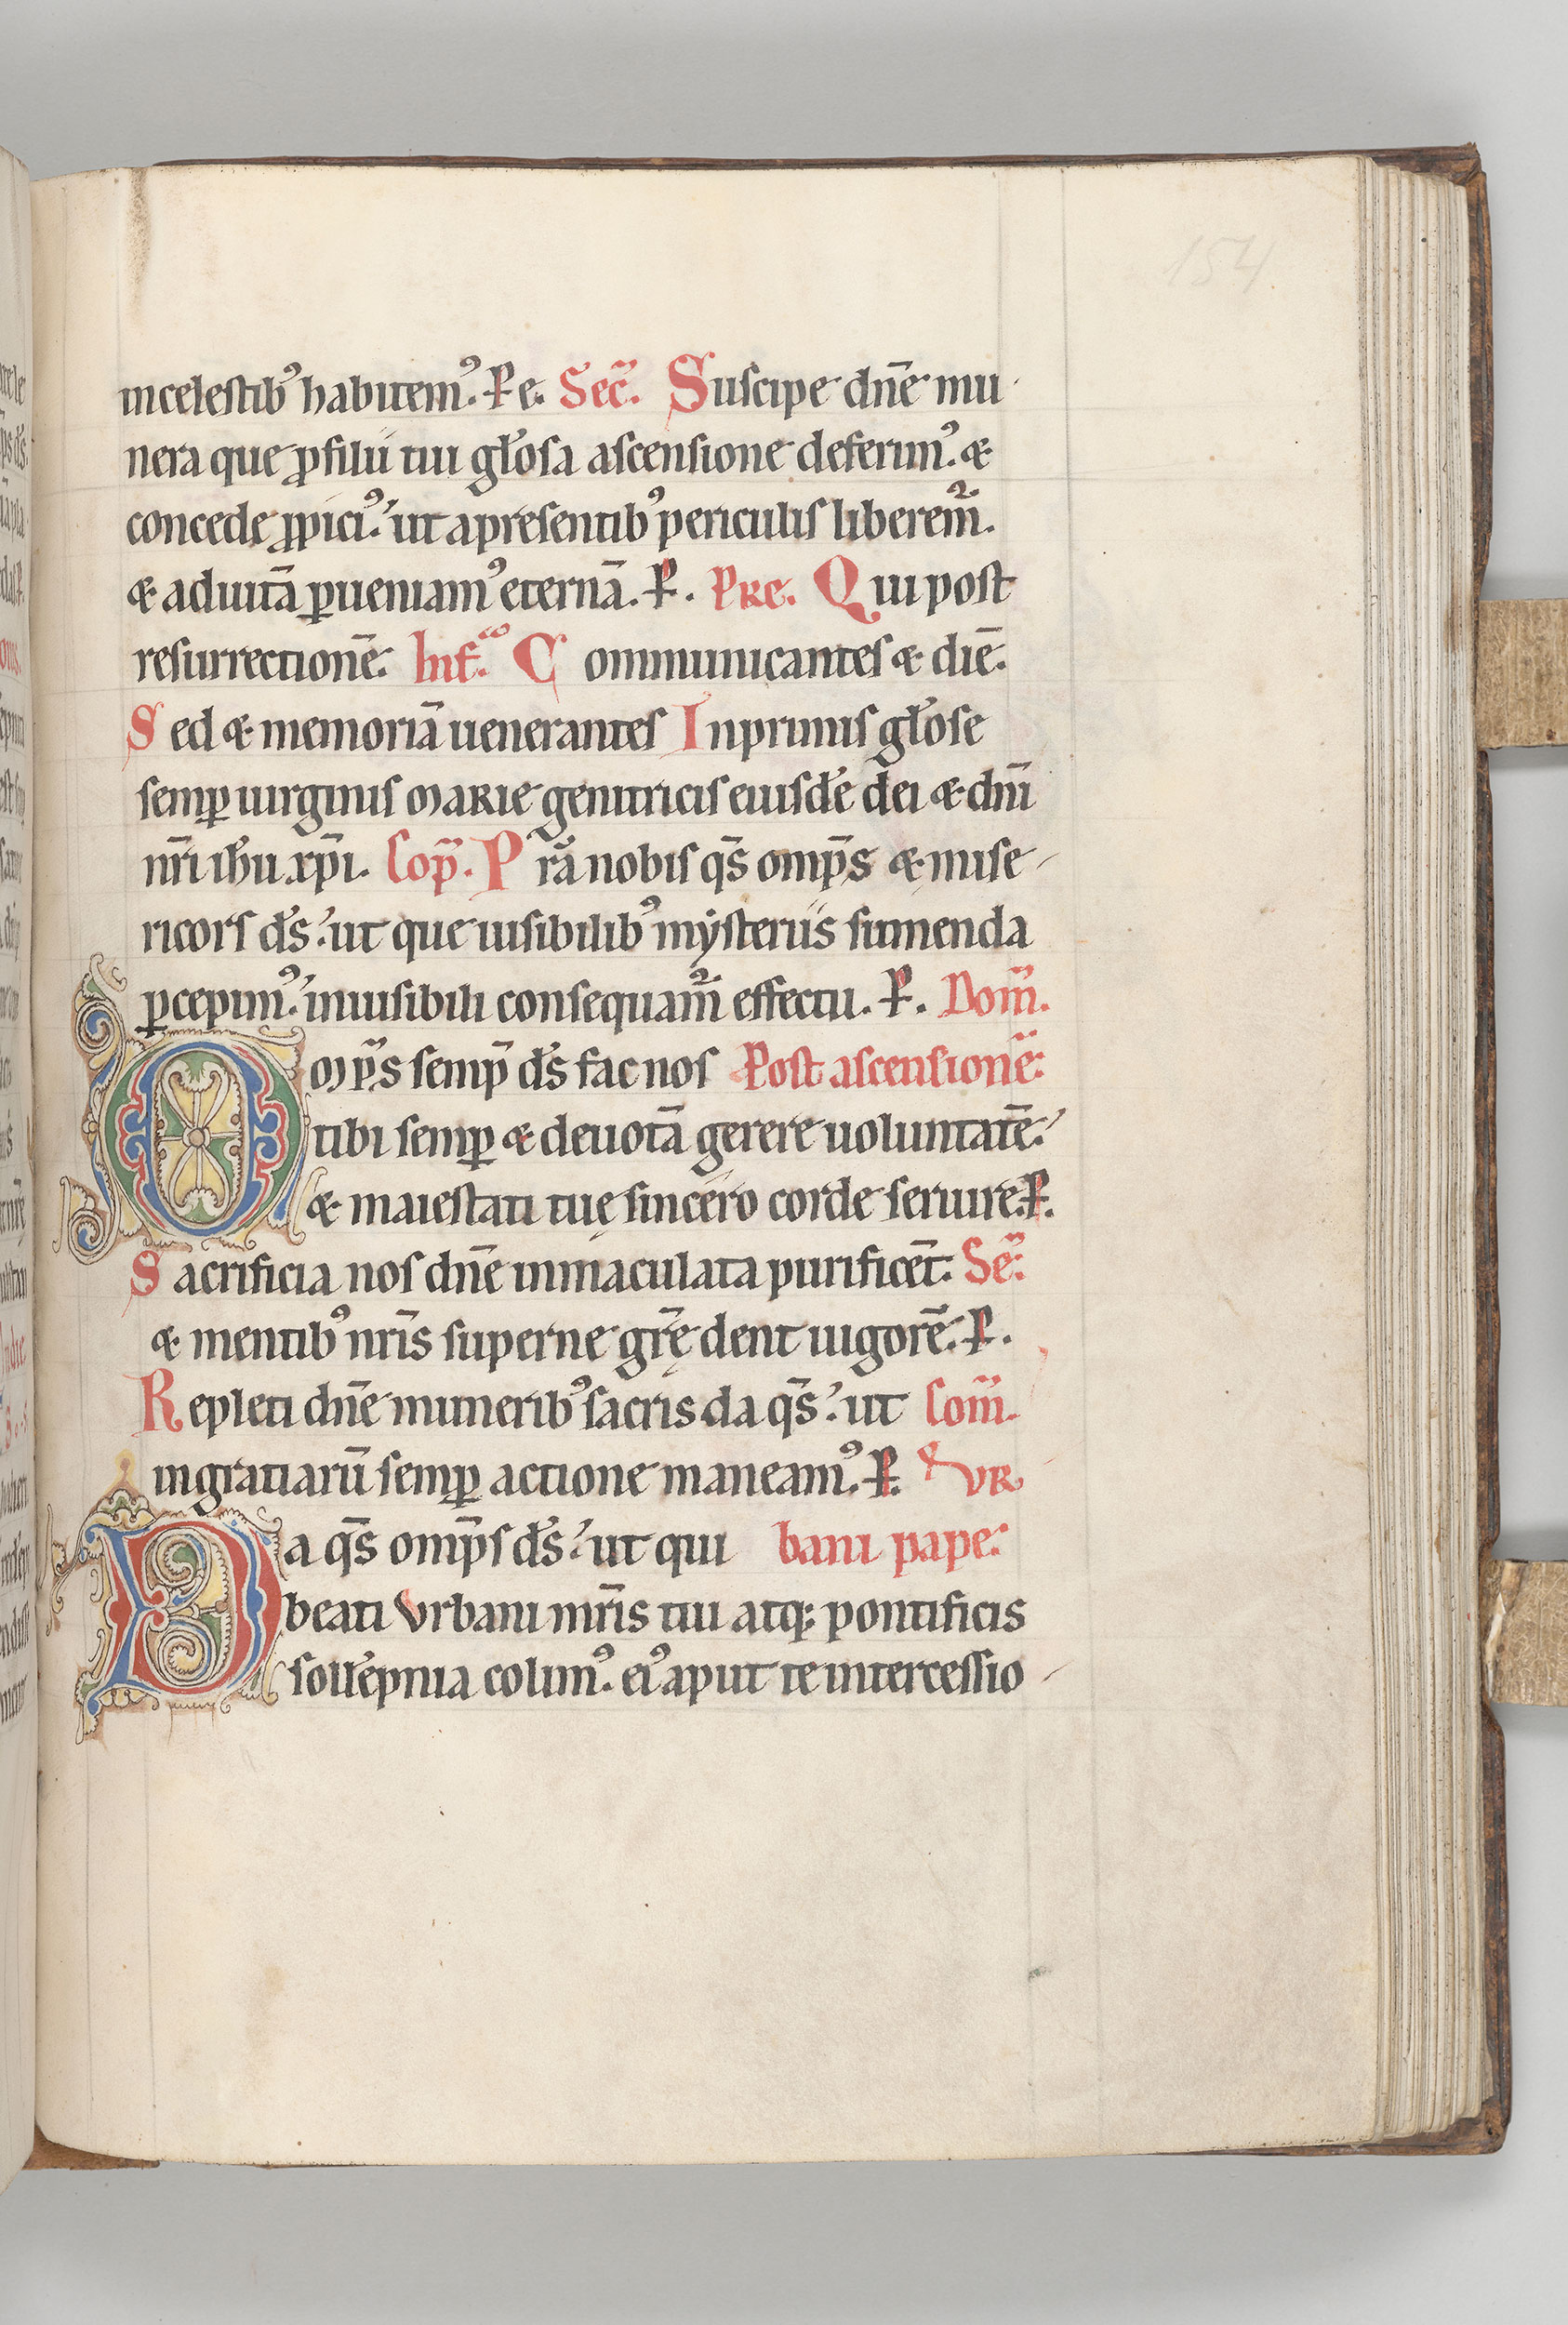 154
incelestibꝰ habitemꝰ. P̵ e. Sec̄. Suscipe dn̄e mu
nera que ꝓ filii tui gl̓osa ascensione deferimꝰ. &
concede ꝓpiciꝰ. ut apresentibꝰ periculis liberem̄.
& aduitā ꝑueniamꝰ eternā. P̵. PRe. Qui post
resurrectionē. Inf̄. Communicantes & diē.
Sed & memoriā uenerantes Inprimis gl̓ose
semꝑ uirginis MARIE genitricis eiusdē dei & dn̄i
nr̄i ih̄u xp̄i. Cop̄. Prā nobis qs̄ omp̄s & mise
ricors d̄s. ut que uisibilibꝰ mẏsteriis sumenda
ꝑcepimꝰ. inuisibili consequam̄ effectu. P̵. Dom̄.
Omp̄s semp̄ d̄s fac nos Post ascensionē.
tibi semꝑ & deuotā gerere uoluntatē.
& maiestati tuę sincero corde seruire. P̵.
Sacrificia nos dn̄e immaculata purificēt. Sē.
& mentibꝰ nr̄is superne gr̄ę dent uigorē. P̵.
Repleti dn̄e muneribꝰ sacris da qs̄. ut Com̄.
ingratiarū semꝑ actione maneamꝰ. P̵. VR
Da qs̄ omp̄s d̄s. ut qui bani pape.
beati Vrbani mr̄is tui atq; pontificis
soll̓epnia colimꝰ. eiꝰ aput te intercessio